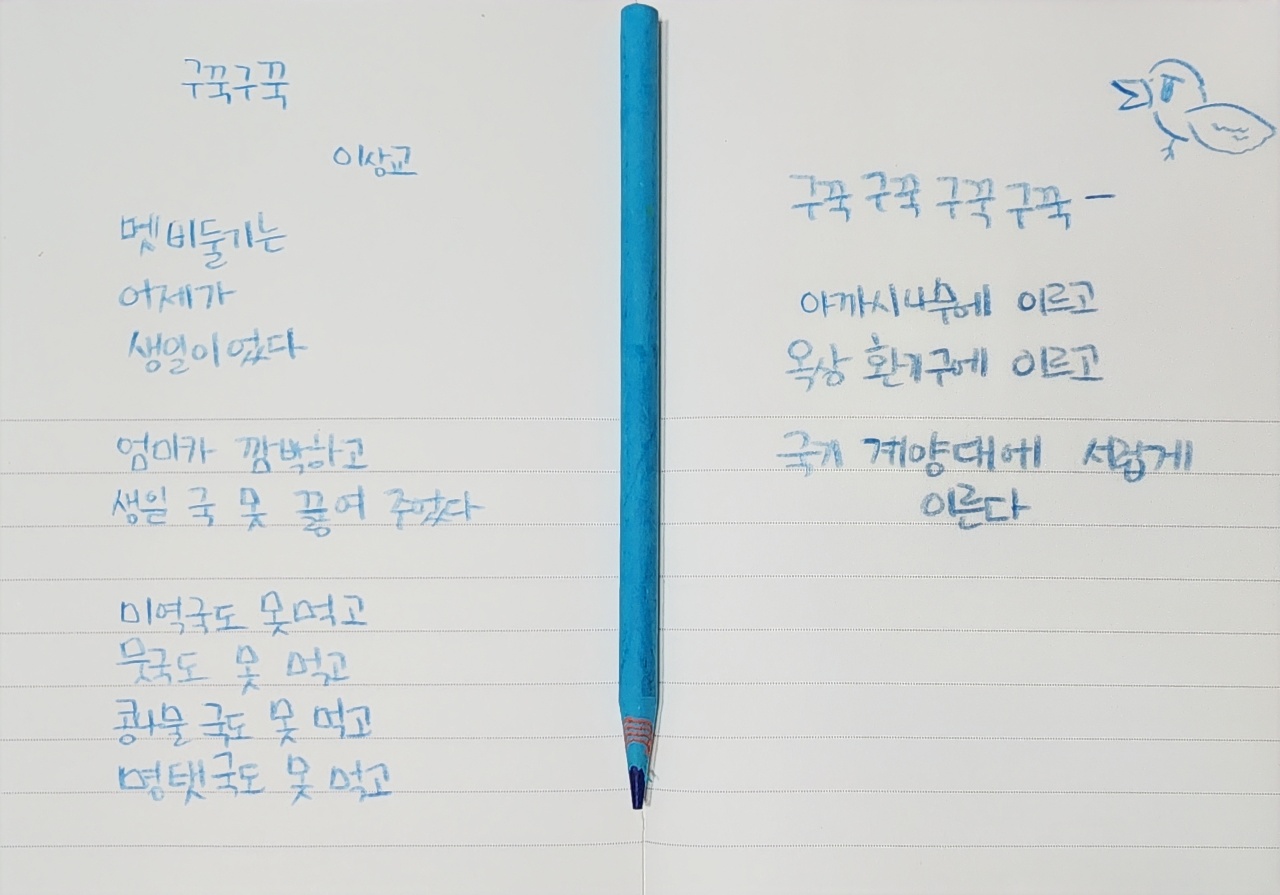 구꾹구꾹
이상교
멧비둘기는
어제가
생일이었다
엄마가 깜박하고
생일 국 못 끓여 주었다
미역국도 못먹고
뭇국도 못 먹고
콩나물 국도 못 먹고
명탯국도 못 먹고
구꾹 구꾹 구꾹 구꾹 —
아까시나무에 이르고
옥상 환기구에 이르고
국기 게양대에 서럽게
이른다